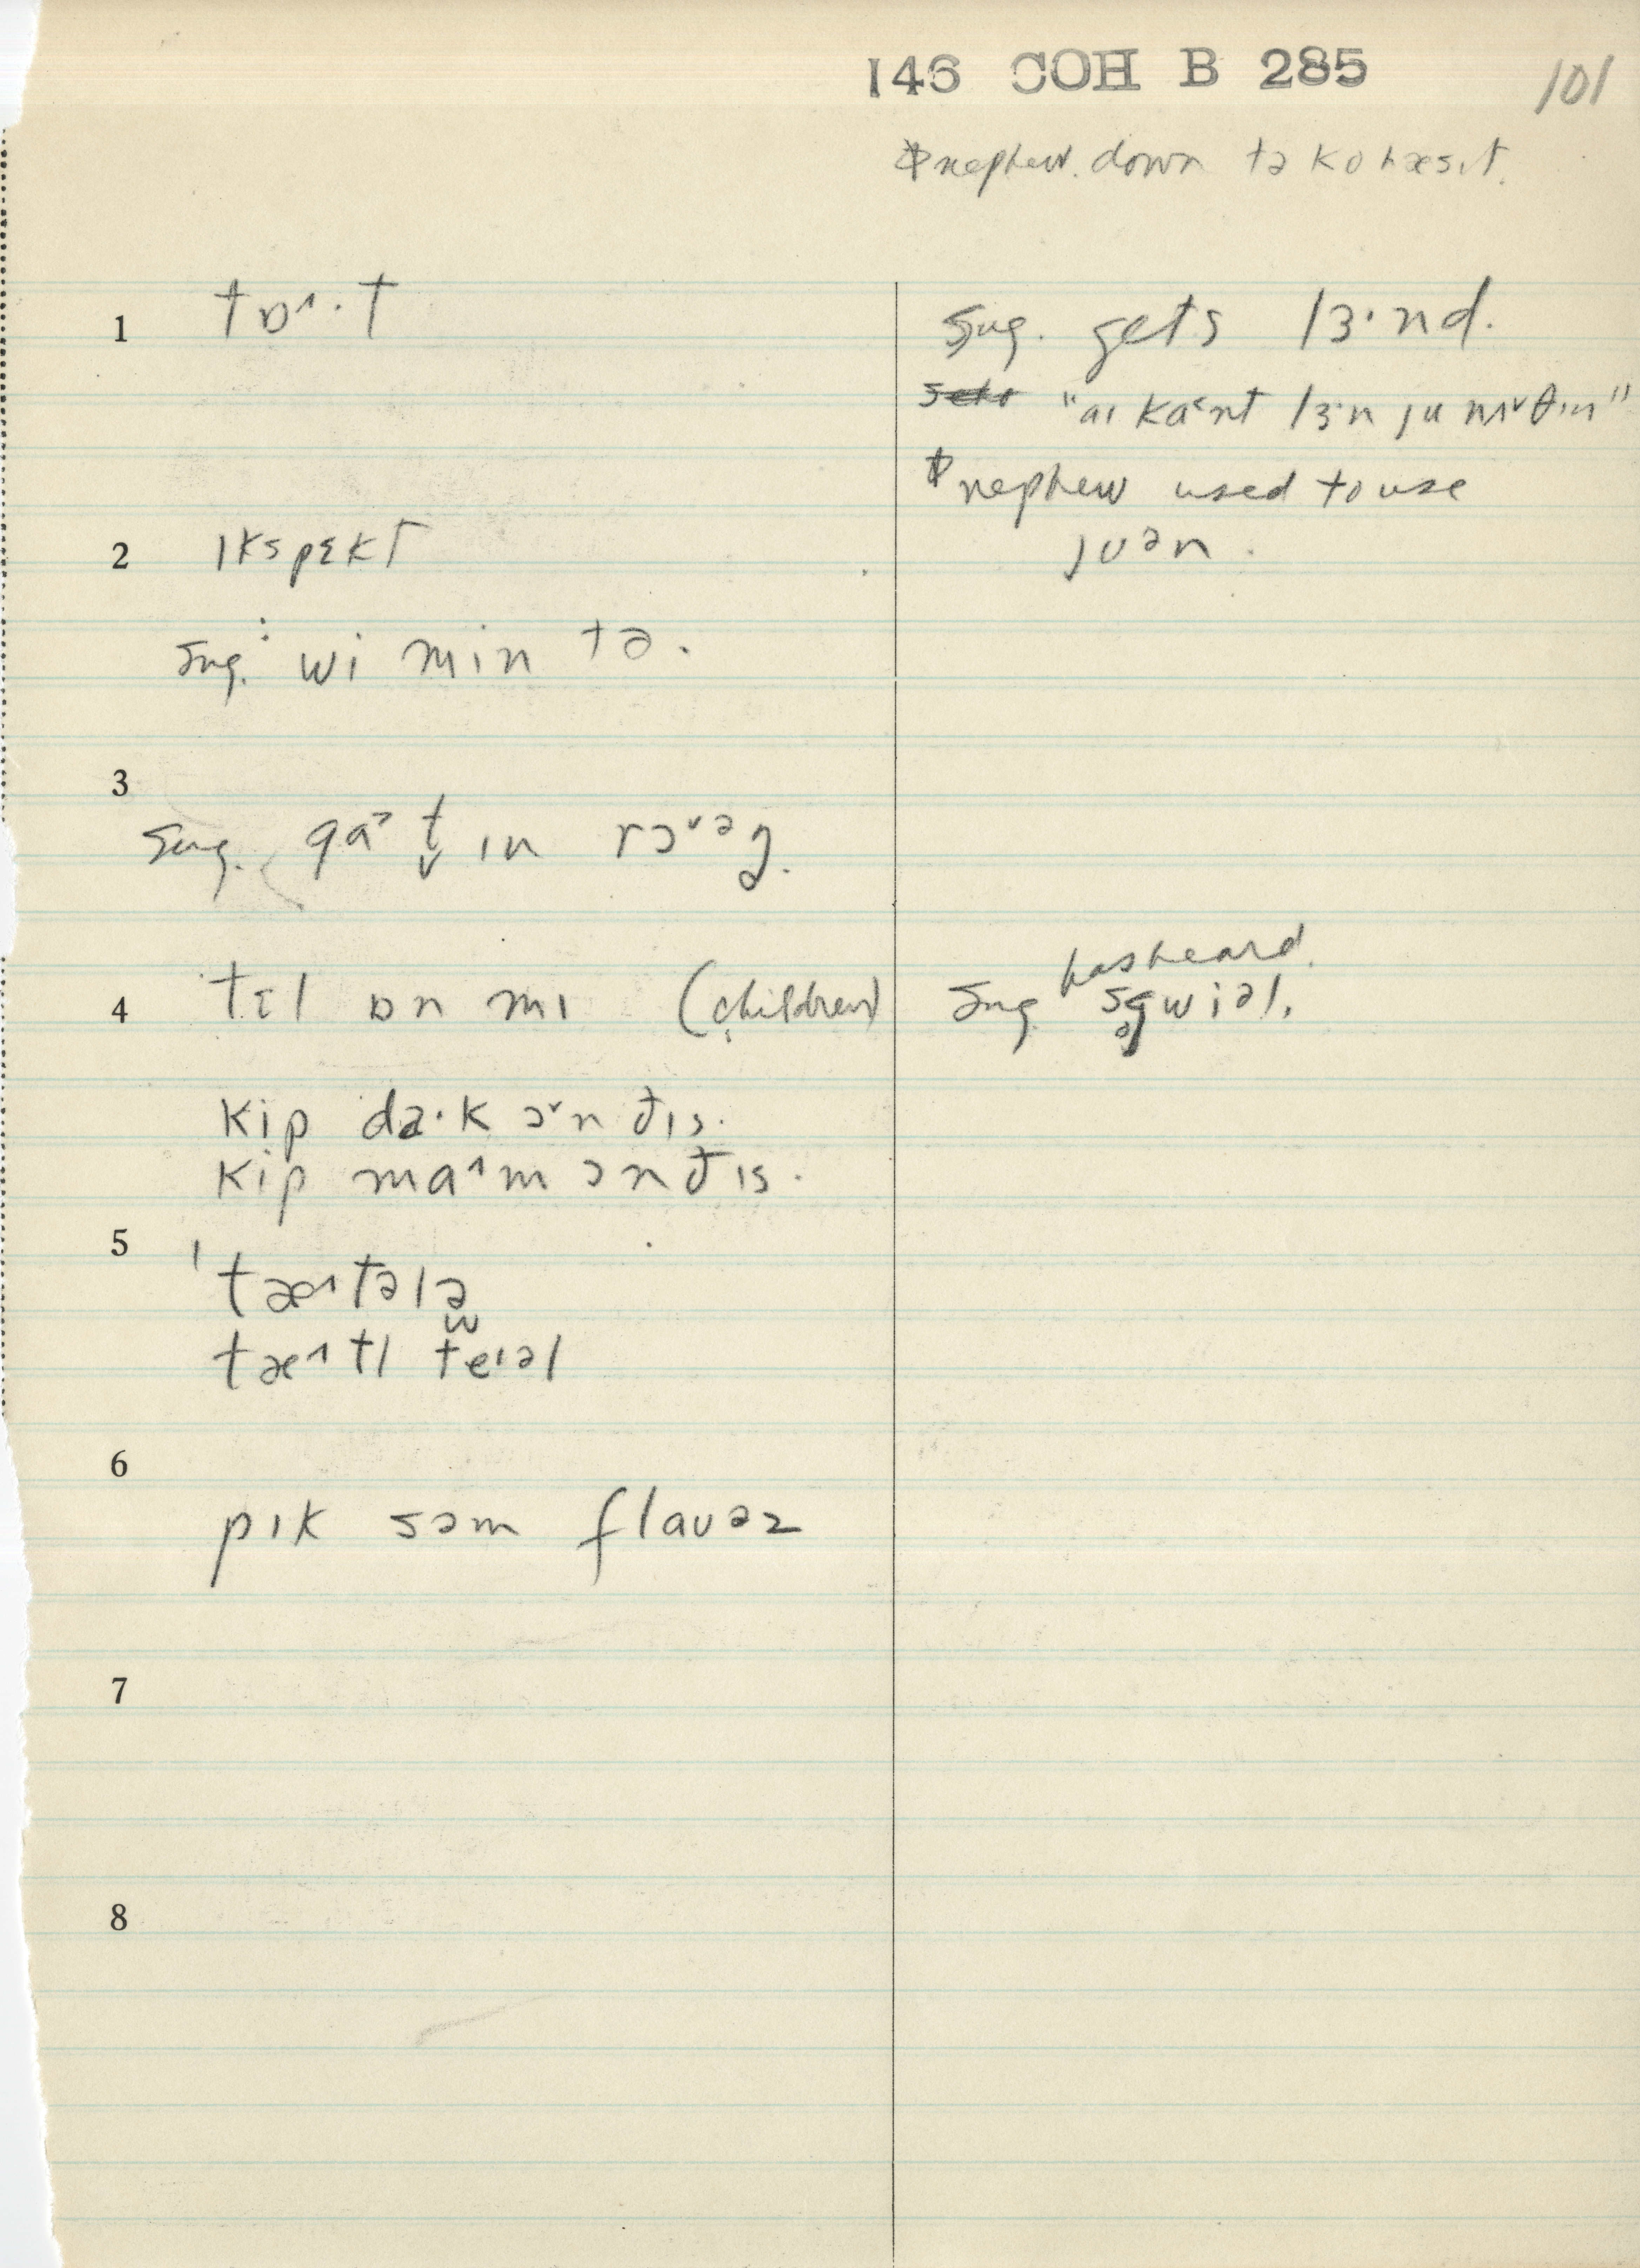 146 COH B 285
101
nephew. down tə kohæsɪt.
1 tɒ˄·t
sug. gets lɜ·nd.
"aɪ ka˂nt lɜ·n ju nʌ˅θɪn"
nephew used to use
juən.
2 ɪkspɛkt
sug: wi min tə.
3
sug. ga˃t̬ ɪn rɔ˅əg̥.
4 tɛl ɒn mɪ (children)
has heard
sug. sgwiəl.
kip da·k ɔ˅n ðɪs.
kip ma˄m ɔn ðɪs.
5
ˈtæ˄tələ
tæ˄tl teɪəl
6
pɪk səm flauəz
7
8